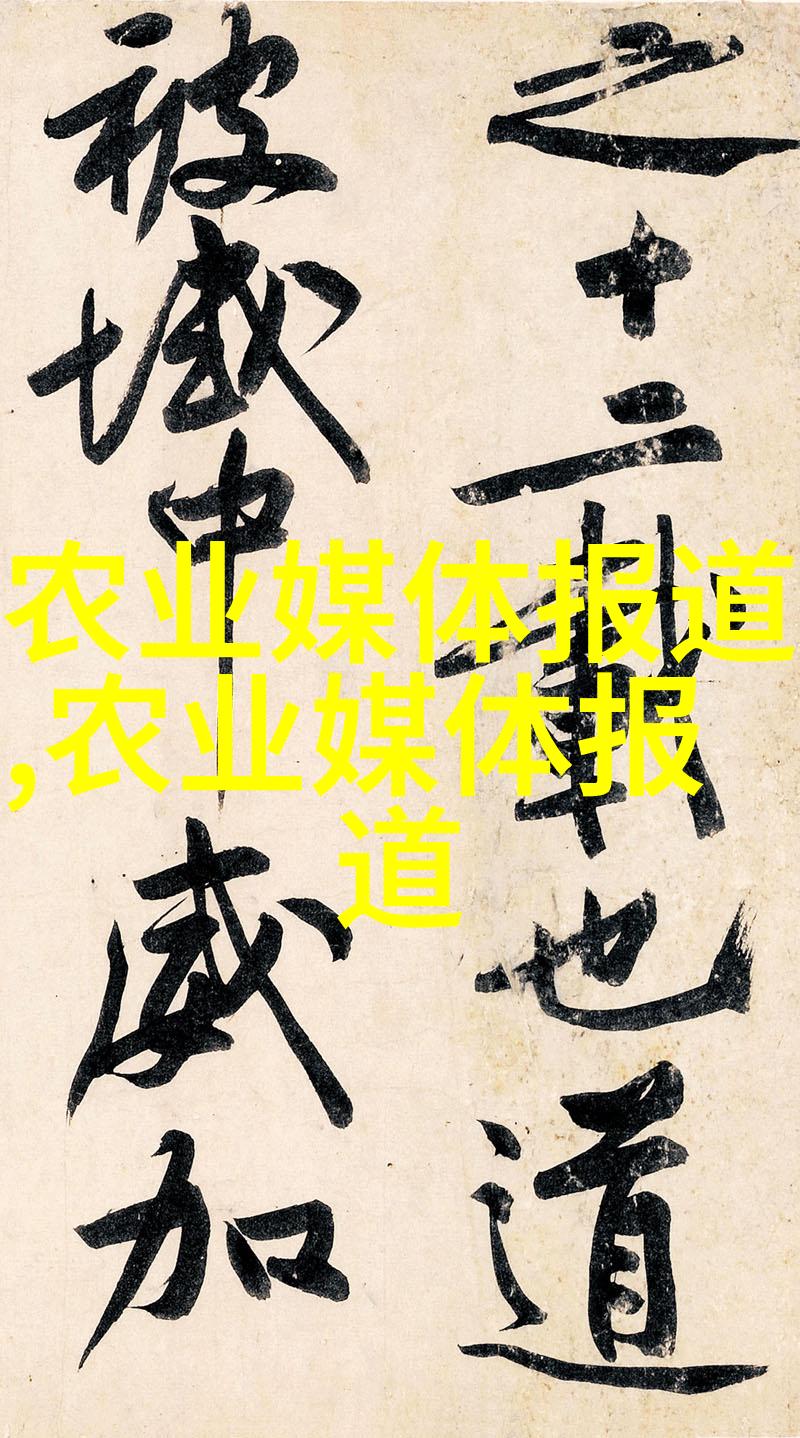 之十二載也道
被域中威加
农业媒体报道
,农业媒体报
道